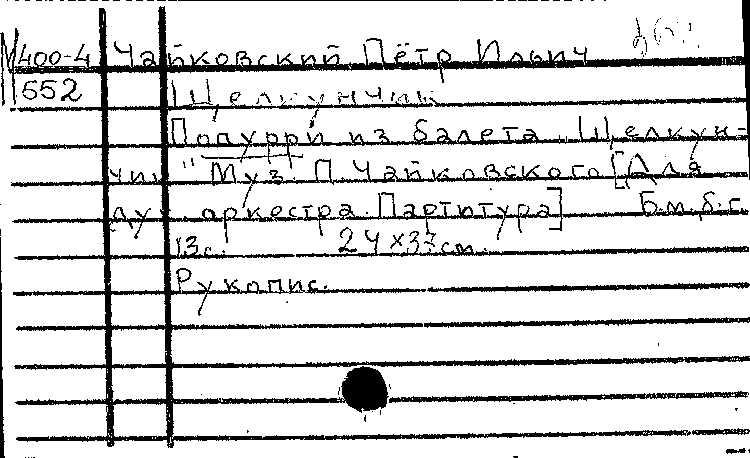 М400-4 Чайковский Пётр Ильич
552 Щелкунчик
Попурри из балета „Щелкун-
чик" Муз. П. Чайковского [Для
дух. аркестра. Партитура] Б.м., б.г.
13с. 24х33см.
Рукопис.